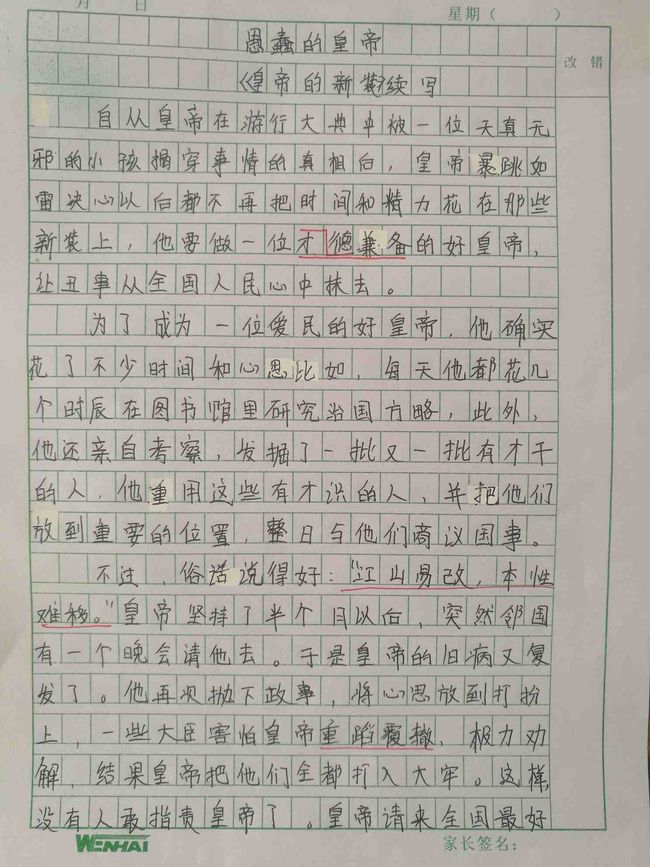 月 日 星期（ ）
愚蠢的皇帝
改 错
《皇帝的新装》续写
自从皇帝在游行大典中被一位天真无
邪的小孩揭穿事情的真相后，皇帝暴跳如
雷决心以后都不再把时间和精力花在那些
新装上，他要做一位才德兼备的好皇帝，
让丑事从全国人民心中抹去。
为了成为一位爱民的好皇帝，他确实
花了不少时间和心思比如，每天他都花几
个时辰在图书馆里研究治国方略，此外，
他还亲自考察，发掘了一批又一批有才干
的人，他重用这些有才识的人，并把他们
放到重要的位置，整日与他们商议国事。
不过，俗话说得好："江山易改，本性
难移。"皇帝坚持了半个月以后，突然邻国
有一个晚会请他去。于是皇帝的旧病又复
发了。他再次抛下政事，将心思放到打扮
上，一些大臣害怕皇帝重蹈覆辙，极力劝
解，结果皇帝把他们全都打入大牢。这样，
没有人敢指责皇帝了。皇帝请来全国最好
WENHAI 家长签名：